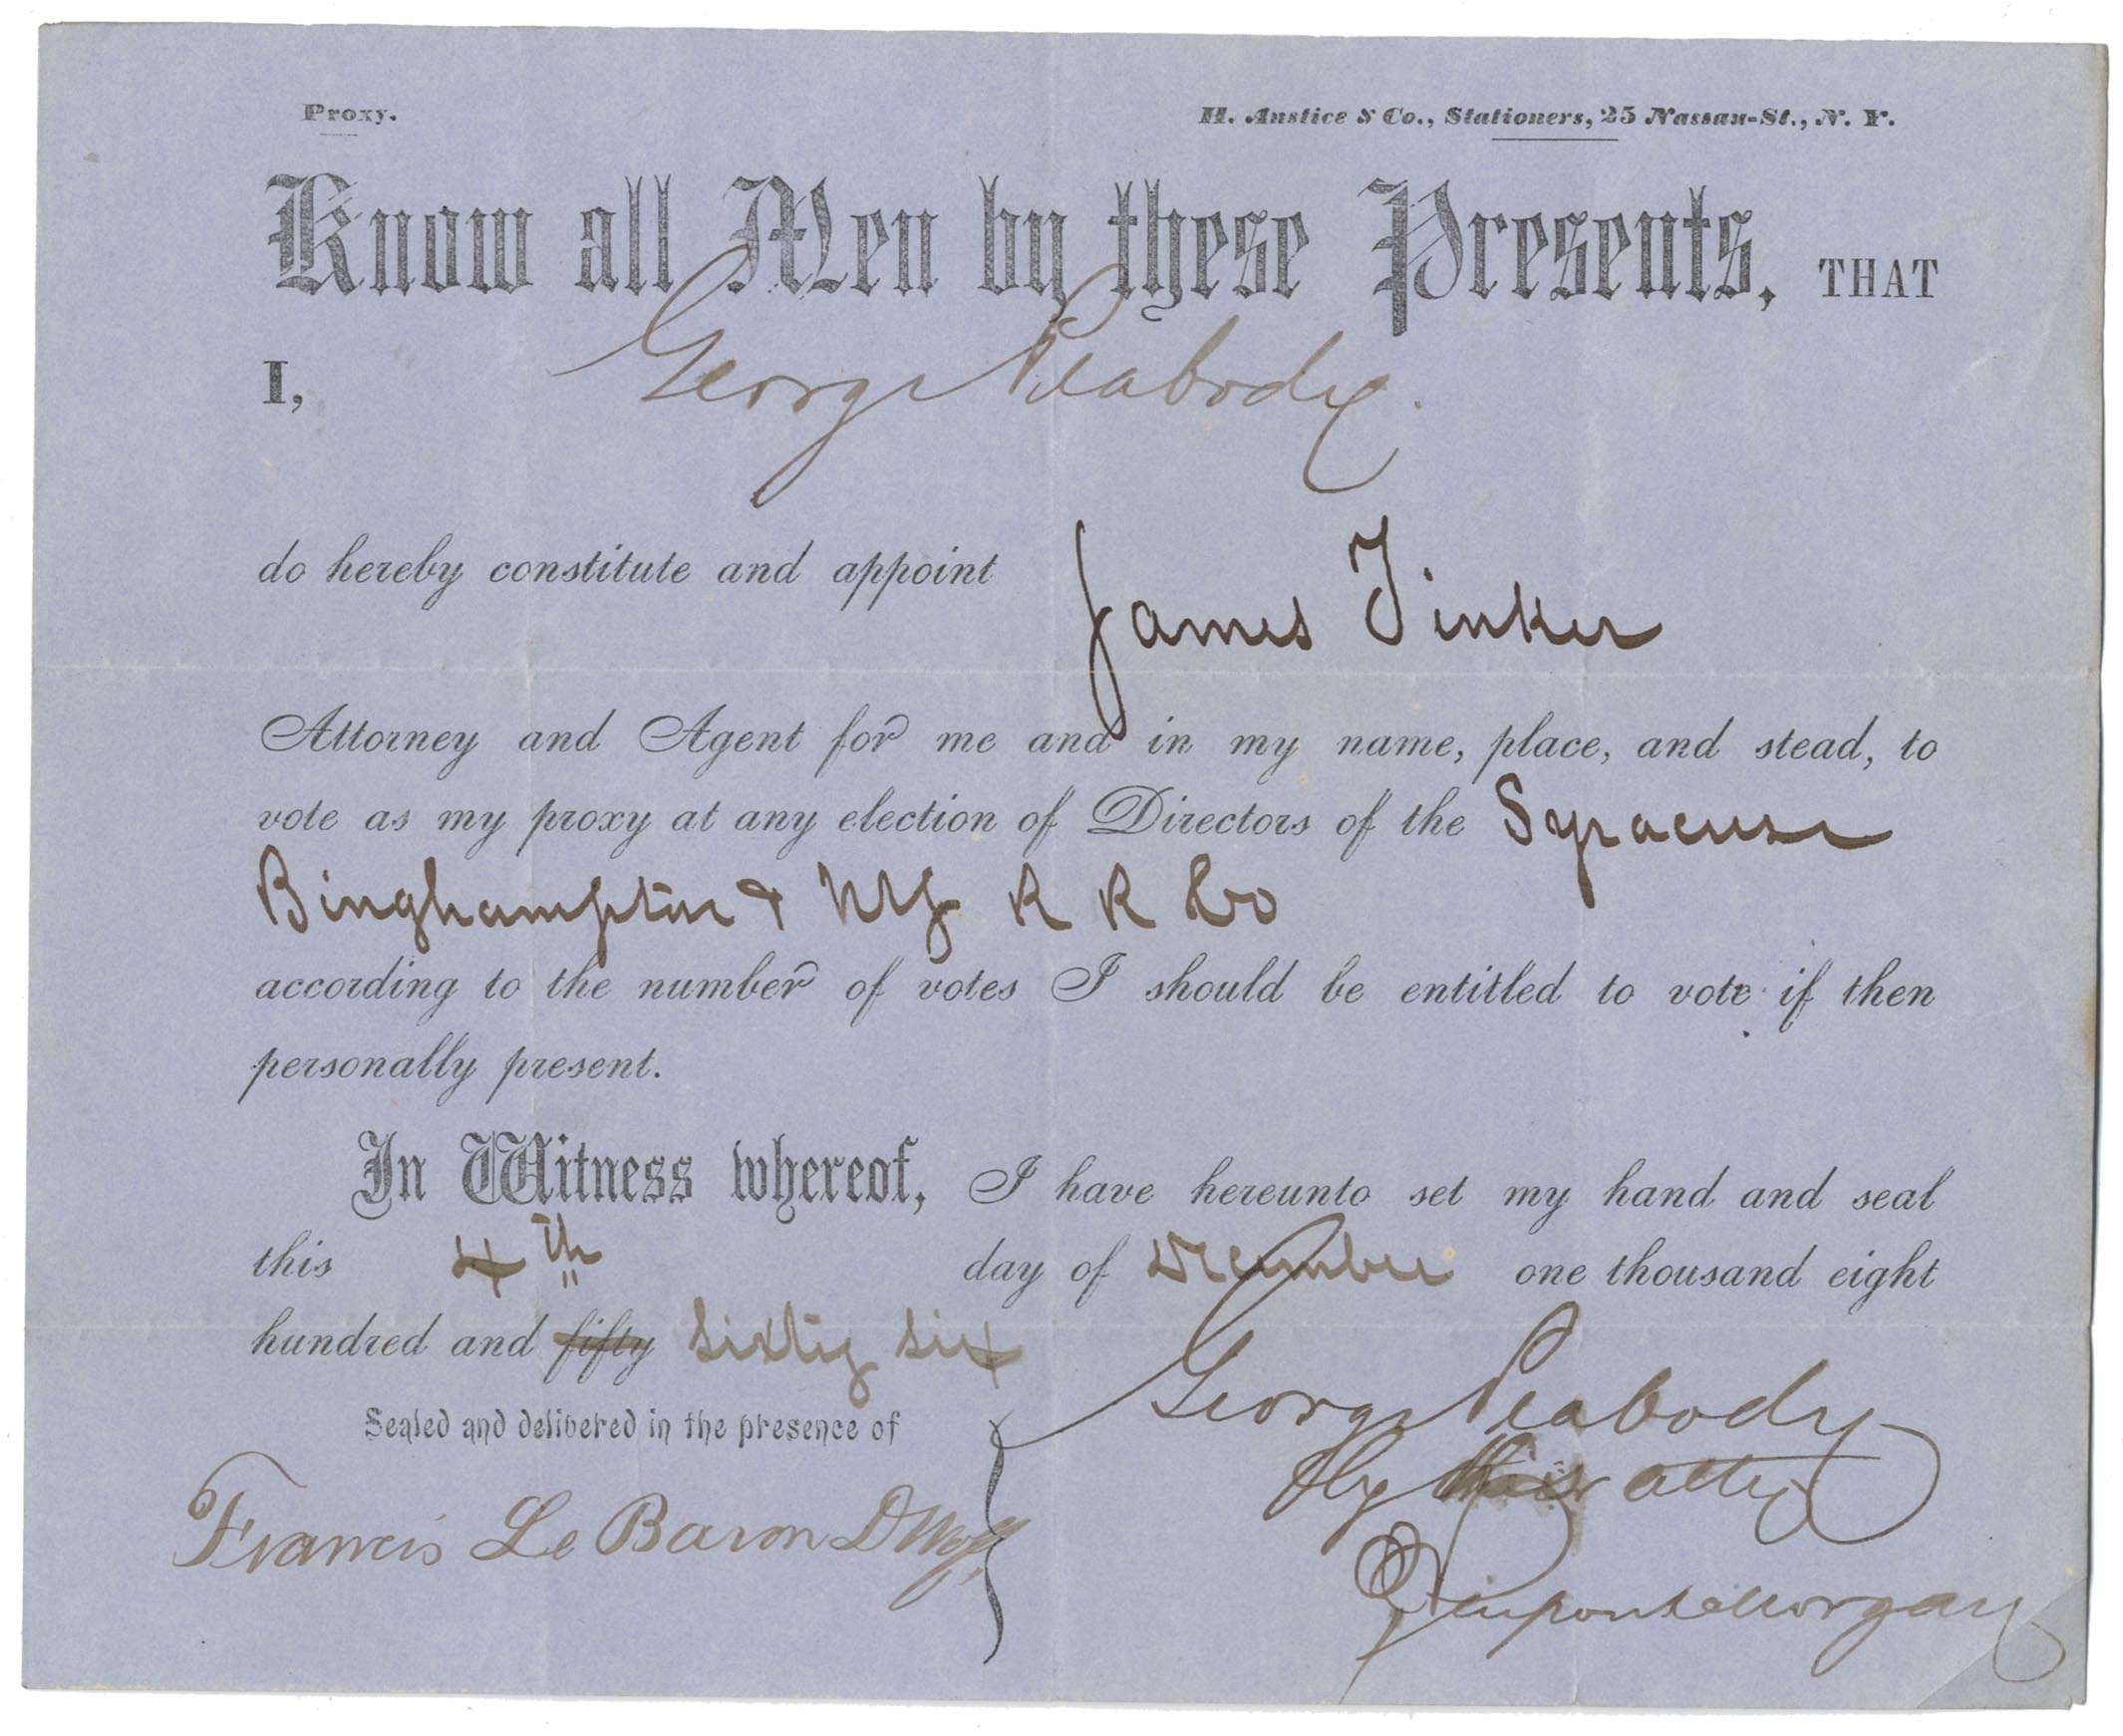 Proxy.
H. Anstice & Co., Stationers, 25 Nassau-St., N. Y.
Know all Men by these Presents, THAT
I, George Peabody.
do hereby constitute and appoint James Tinker
Attorney and Agent for me and in my name, place, and stead, to
vote as my proxy at any election of Directors of the Syracuse
Binghampton & NY R R Co
according to the number of votes I should be entitled to vote if then
personally present.
In Witness whereof, I have hereunto set my hand and seal
this 4th day of December one thousand eight
hundred and fifty sixty six
Sealed and delivered in the presence of
George Peabody
By his atty
Francis Le Baron
J Pierpont Morgan